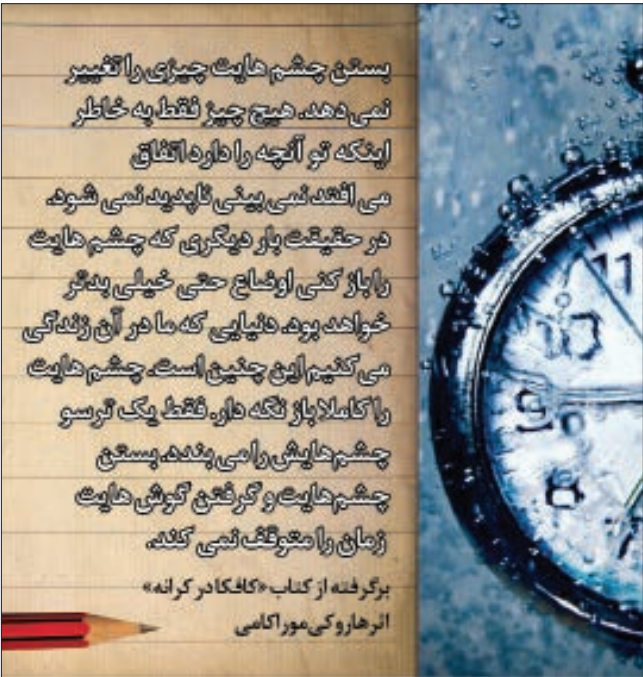 بستن چشم هایت چیزی را تغییر
نمی دهد. هیچ چیز فقط به خاطر
اینکه تو آنچه را دارد اتفاق
می افتد نمی بینی ناپدید نمی شود.
در حقیقت بار دیگری که چشم هایت
را باز کنی اوضاع حتی خیلی بدتر
خواهد بود. دنیایی که ما در آن زندگی
می کنیم این چنین است. چشم هایت
را کاملا باز نگه دار. فقط یک ترسو
چشم‌هایش را می بندد. بستن
چشم‌هایت و گرفتن گوش هایت
زمان را متوقف نمی کند.
برگرفته از کتاب «کافکا در کرانه»
اثر هاروکی موراکامی
11
10
9
8